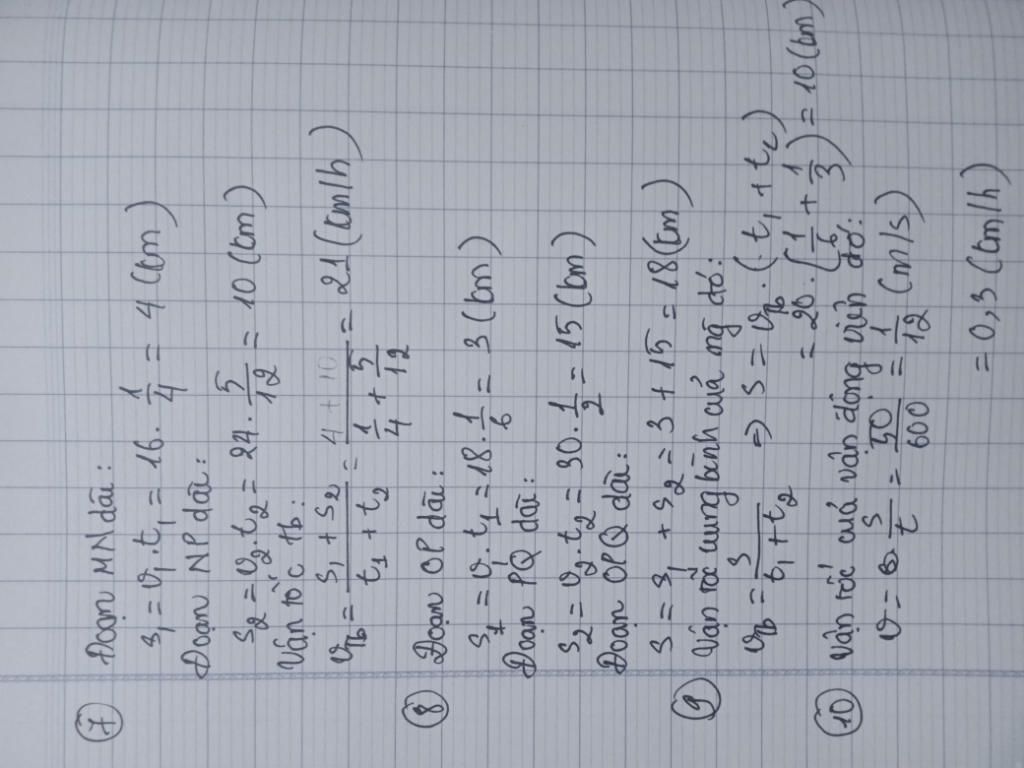 ⑦ Đoạn MN dài:
s₁ = v₁.t₁ = 16.1/4 = 4 (km)
Đoạn NP dài:
s₂ = v₂.t₂ = 24.5/12 = 10 (km)
Vận tốc tb:
vtb = (s₁ + s₂)/(t₁ + t₂) = (4 + 10)/(1/4 + 5/12) = 21 (km/h)
⑧ Đoạn OP dài:
s₁ = v₁.t₁ = 18.1/6 = 3 (km)
Đoạn PQ dài:
s₂ = v₂.t₂ = 30.1/2 = 15 (km)
Đoạn OPQ dài:
s = s₁ + s₂ = 3 + 15 = 18 (km)
⑨ Vận tốc trung bình của ng đó:
vtb = s/(t₁ + t₂) => s = vtb.(t₁ + t₂)
= 20.(1/6 + 1/3) = 10 (km)
⑩ Vận tốc của vận động viên đó:
v = s/t = 50/600 = 1/12 (m/s)
= 0,3 (km/h)